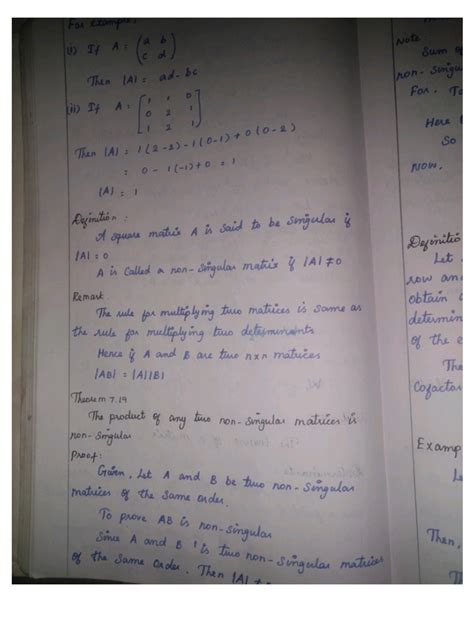 For example:
(i) If A = ( a b
c d )
Then |A| = ad - bc
(ii) If A = [ 1 1 0
0 2 1
1 2 1 ]
Then |A| = 1(2-2) - 1(0-1) + 0(0-2)
= 0 - 1(-1) + 0 = 1
|A| = 1
Definition :
A square matrix A is said to be singular if
|A| = 0
A is called a non-singular matrix if |A| ≠ 0
Remark
The rule for multiplying two matrices is same as
the rule for multiplying two determinants
Hence if A and B are two n x n matrices
|AB| = |A||B|
Theorem 7.29
The product of any two non-singular matrices is
non-singular
Proof:
Given, Let A and B be two non-singular
matrices of the same order.
To prove AB is non-singular
Since A and B is two non-singular matrices
of the same order. Then |A| ≠
Note
Sum of
non-singu
For. To
Here
So
Now,
Definitio
Let
row an
obtain
determin
of the e
The
Cofactor
Examp
Le
Then,